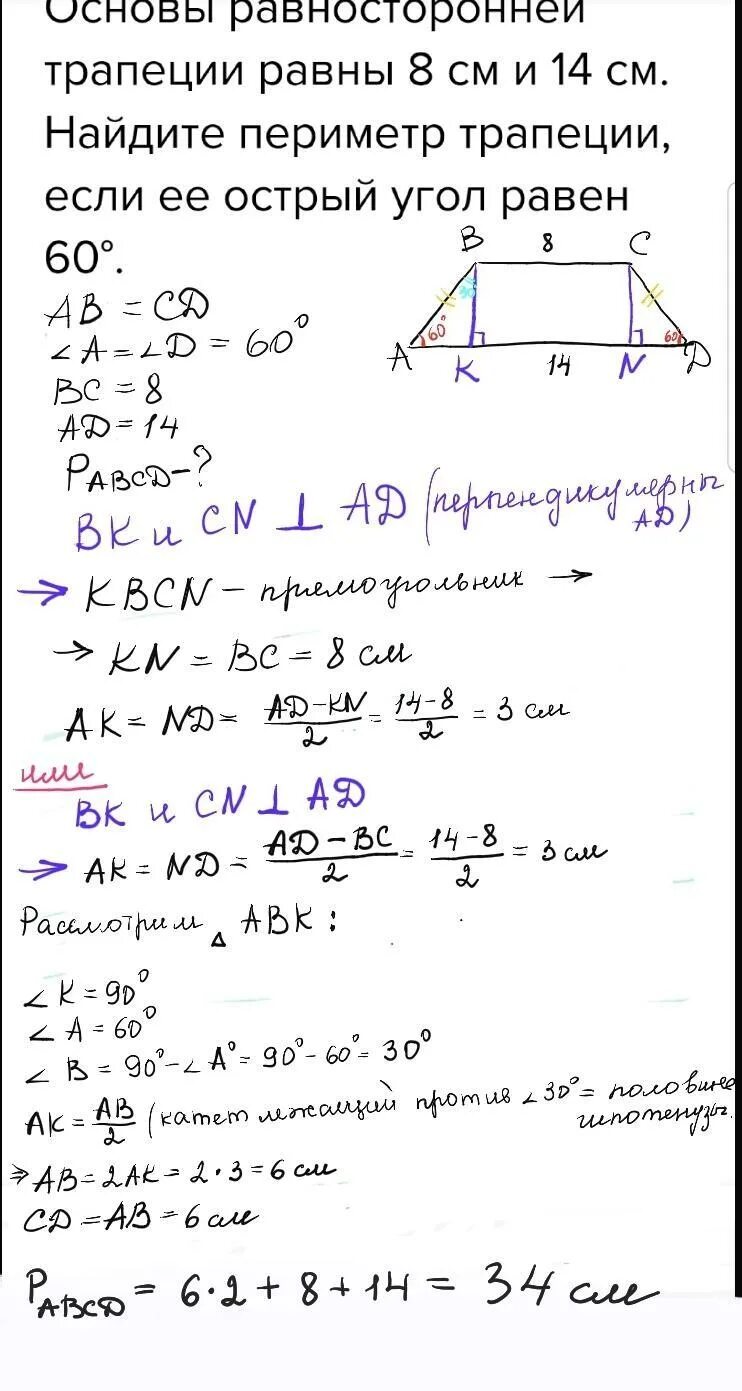 Основы равносторонней
трапеции равны 8 см и 14 см.
Найдите периметр трапеции,
если ее острый угол равен
60°.
B 8 C
30
60° 60
A K 14 N D
AB = CD
∠A = ∠D = 60°
BC = 8
AD = 14
PABCD - ?
BK и CN ⊥ AD (перпендикулярны
AD)
→ KBCN – прямоугольник →
→ KN = BC = 8 см
AK = ND = (AD-KN)/2 = (14-8)/2 = 3 см
или
BK и CN ⊥ AD
→ AK = ND = (AD-BC)/2 = (14-8)/2 = 3 см
Рассмотрим Δ ABK :
∠K = 90°
∠A = 60°
∠B = 90° - ∠A° = 90° - 60° = 30°
AK = AB/2 (катет лежащий против ∠30° = половине
гипотенузы.
⇒ AB = 2AK = 2 · 3 = 6 см
CD = AB = 6 см
PABCD = 6·2 + 8 + 14 = 34 см